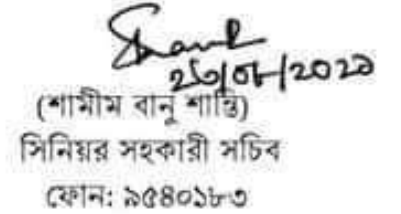 ২৩/০৮/২০২১
(শামীম বানু শান্তি)
সিনিয়র সহকারী সচিব
ফোন: ৯৫৪০১৮৩